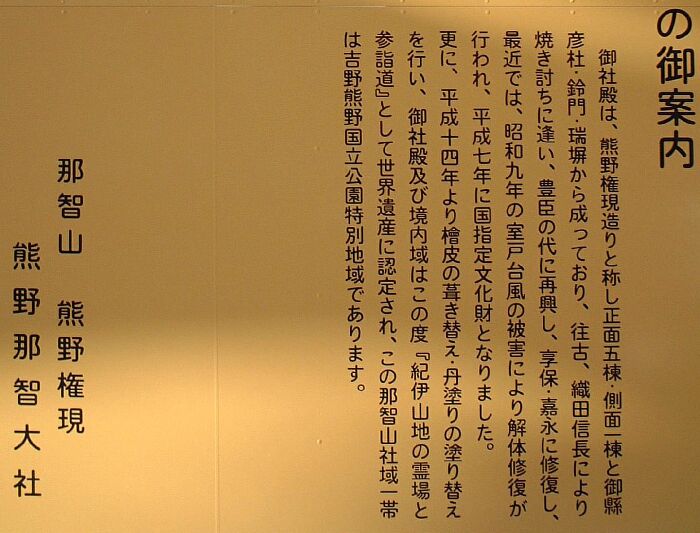 の御案内
御社殿は、熊野権現造りと称し正面五棟・側面一棟と御縣
彦杜・鈴門・瑞塀から成っており、往古、織田信長により
焼き討ちに逢い、豊臣の代に再興し、享保・嘉永に修復し、
最近では、昭和九年の室戸台風の被害により解体修復が
行われ、平成七年に国指定文化財となりました。
更に、平成十四年より檜皮の葺き替え・丹塗りの塗り替え
を行い、御社殿及び境内域はこの度『紀伊山地の霊場と
参詣道』として世界遺産に認定され、この那智山社域一帯
は吉野熊野国立公園特別地域であります。
那智山 熊野権現
熊野那智大社